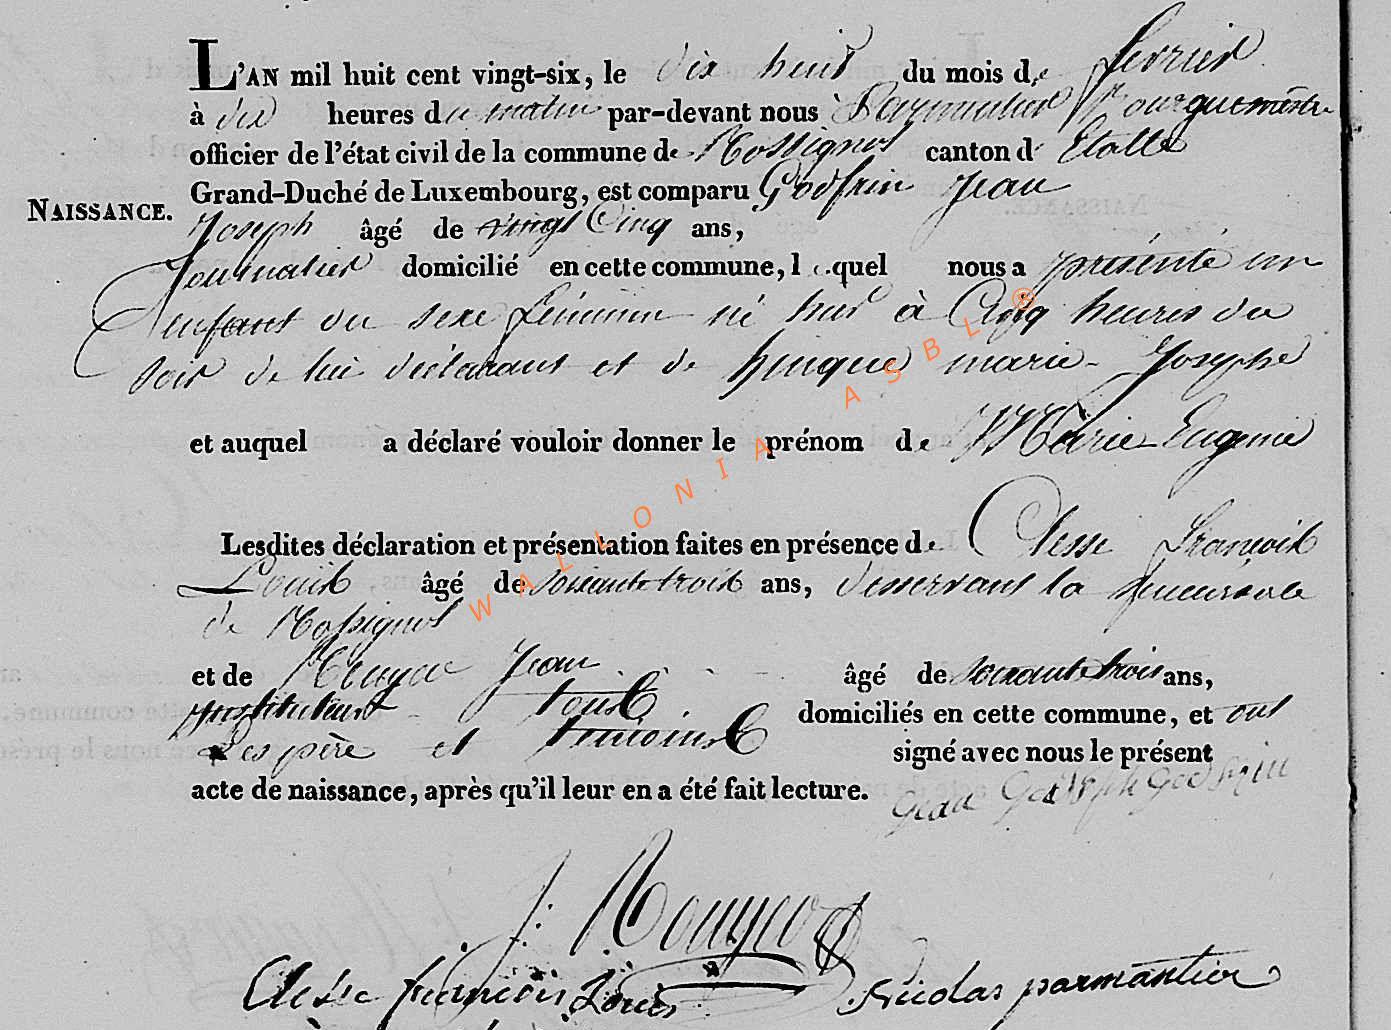 L'AN mil huit cent vingt-six, le dix huit du mois de fevrier
à dix heures du matin par-devant nous Parmentier Bourguemestre
officier de l'état civil de la commune de Rossignol canton d' Etalle
Grand-Duché de Luxembourg, est comparu Godfrin Jean
NAISSANCE.
Joseph âgé de vingt Cinq ans,
Journalier domicilié en cette commune, lequel nous a présenté un
enfant du sexe féminin né hier à Cinq heures du
soir de lui déclarant et de hinque marie-Josephe
et auquel a déclaré vouloir donner le prénom de Marie-Eugenie
Lesdites déclaration et présentation faites en présence de Clesse Francois
Louis âgé de soixante trois ans, desservant la succursale
de Rossignol
et de Rougeu Jean âgé de soixante trois ans,
instituteur tous domiciliés en cette commune, et ont
Les père et temoins signé avec nous le présent
acte de naissance, après qu'il leur en a été fait lecture. Jean Joseph Godfrin
J: Rougeu
Clesse françois Louis Nicolas parmantier
WALLONIA ASBL ®